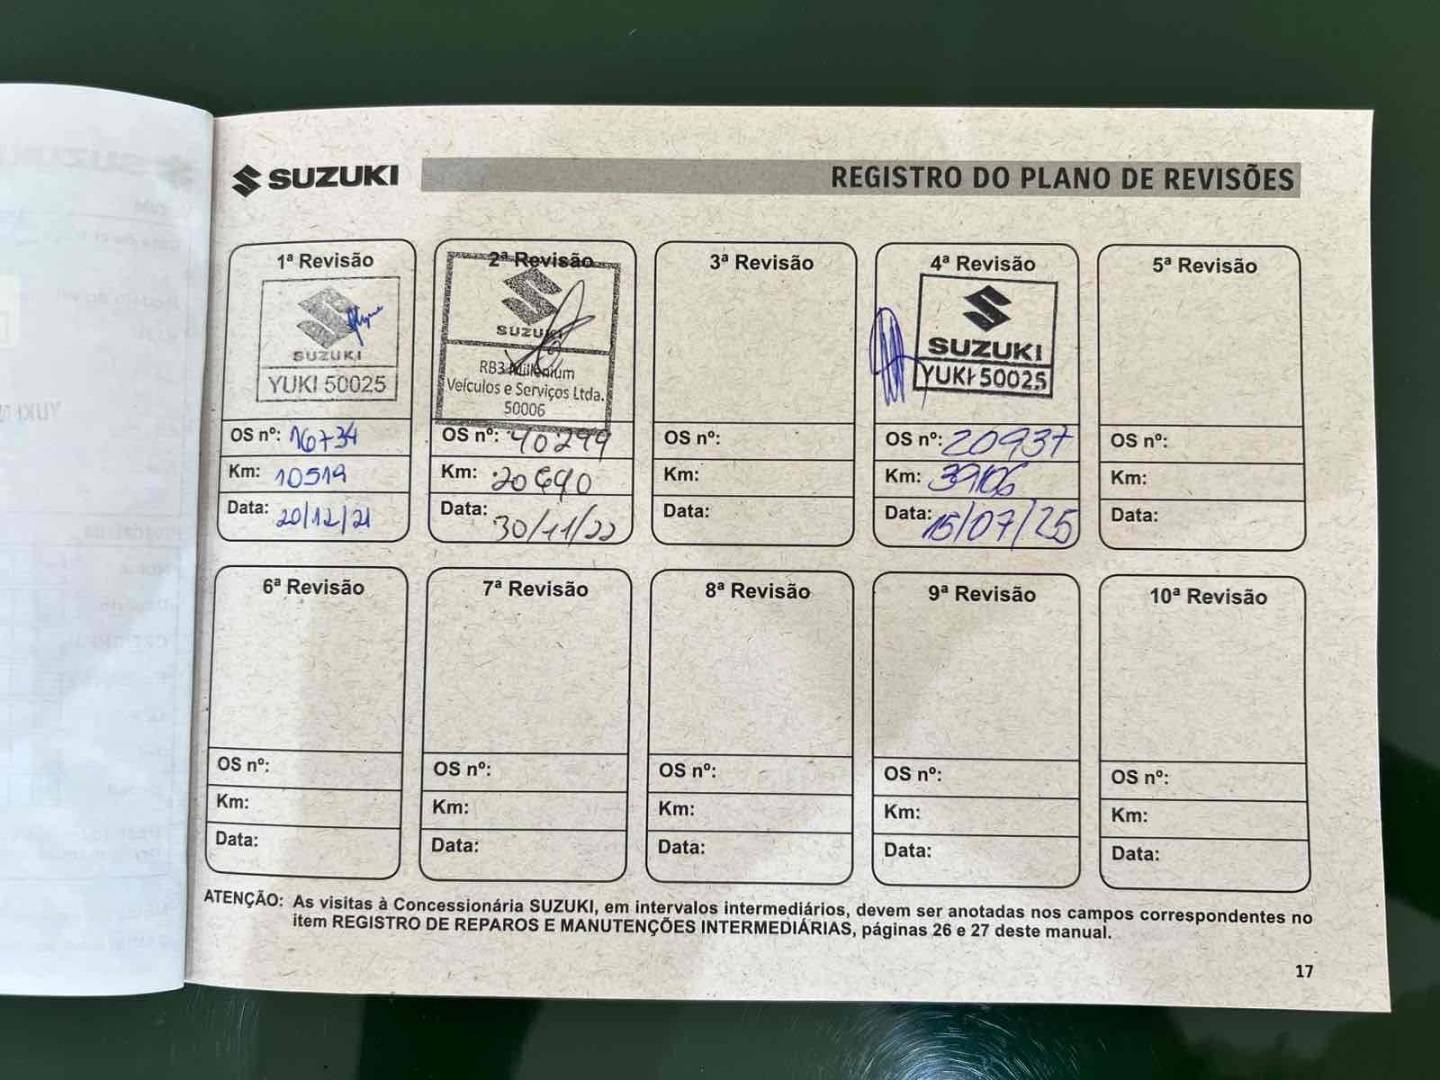 SUZUKI
REGISTRO DO PLANO DE REVISÕES
1ª Revisão
SUZUKI
YUKI 50025
OS nº: 16734
Km: 10519
Data: 20/12/21
2ª Revisão
SUZUKI
RB3 Millenium
Veículos e Serviços Ltda.
50006
OS nº: 40299
Km: 20690
Data: 30/11/22
3ª Revisão
OS nº:
Km:
Data:
4ª Revisão
SUZUKI
YUKI 50025
OS nº: 20937
Km: 39106
Data: 15/07/25
5ª Revisão
OS nº:
Km:
Data:
6ª Revisão
OS nº:
Km:
Data:
7ª Revisão
OS nº:
Km:
Data:
8ª Revisão
OS nº:
Km:
Data:
9ª Revisão
OS nº:
Km:
Data:
10ª Revisão
OS nº:
Km:
Data:
ATENÇÃO: As visitas à Concessionária SUZUKI, em intervalos intermediários, devem ser anotadas nos campos correspondentes no
item REGISTRO DE REPAROS E MANUTENÇÕES INTERMEDIÁRIAS, páginas 26 e 27 deste manual.
17